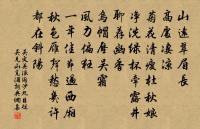 山遠翠眉長
高處淒涼
菊花清瘦杜秋娘
淨洗綠杯牽露井
聊薦幽香
烏帽壓吳霜
風力偏狂
一年佳節過西廂
秋色雁聲愁幾許
都在斜陽
吳文英浪淘沙九日從
吳見山覓酒